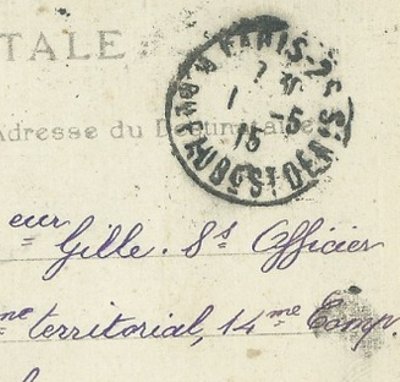 TALE
Adresse du Destinataire
PARIS-25
7 30
1 -5
15
R. DU FAUBG ST DENIS
eur Gille. Ss Officier
me territorial, 14me Comp